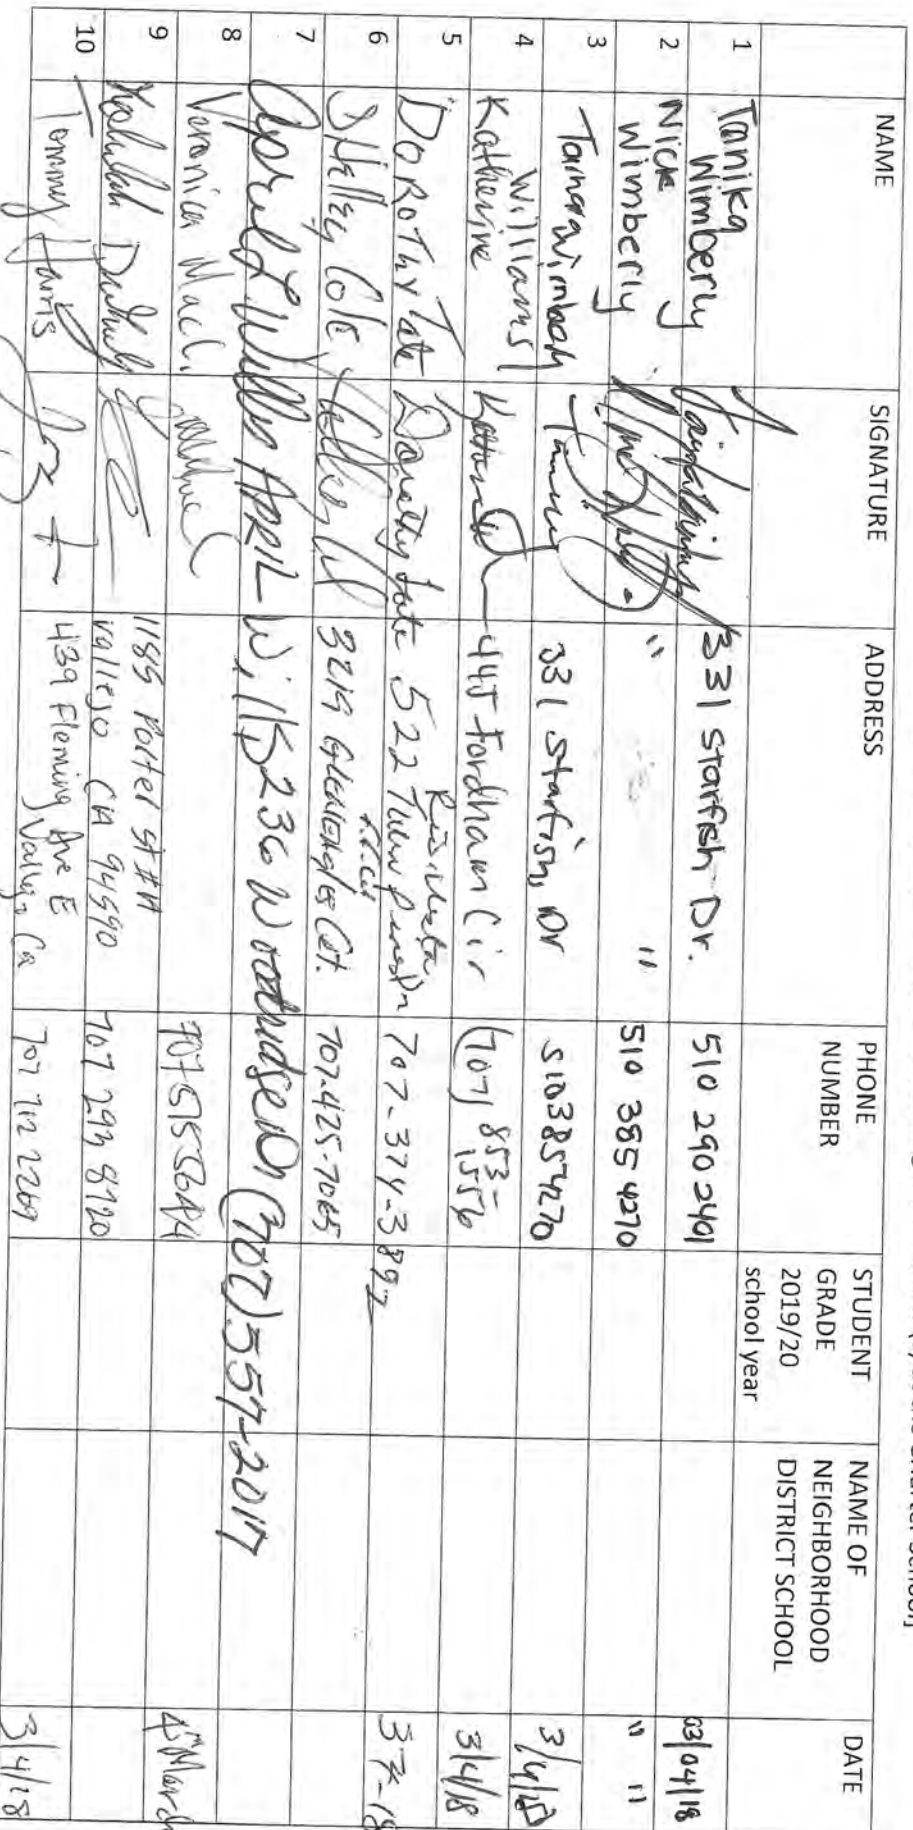 NAME SIGNATURE ADDRESS PHONE NUMBER STUDENT GRADE 2019/20 school year NAME OF NEIGHBORHOOD DISTRICT SCHOOL DATE
1 Tanika Wimberly 331 Starfish Dr. 510 290 2401 03/04/18
2 Nick Wimberly " " 510 385 4270 " "
3 Tamara Wimberly 331 Starfish, Dr 5103854270 3/4/18
4 Katherine Williams 445 Fordham Cir (707) 853-1556 3/4/18
5 DoRoThy Tate Dorothy Tate 522 707-374-3892
6 SHelley Cole 3219 Gleneagles Ct. 707-425-7065
7 April Willis APRIL Willis 236 Woodridge Dr (707) 557-2017
8 Veronica 4th March
9 1185 Porter St #A Vallejo CA 94590 707 293 8720
10 Tommy Harris 439 Fleming Ave E Vallejo Ca 707 712 2269 3/4/18